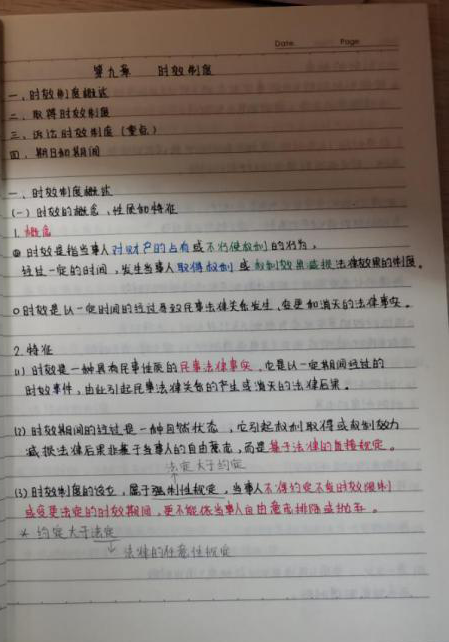 Date. Page.
第九章 时效制度
一、时效制度概述
二、取得时效制度
三、诉讼时效制度（重点）
四、期日和期间
一、时效制度概述
（一）时效的概念、性质和特征
1. 概念
时效是指当事人对财产的占有或不行使权利的行为，
经过一定的时间，发生当事人取得权利或权利效果减损法律效果的制度。
○时效是以一定时间的经过导致民事法律关系发生，变更和消灭的法律事实。
2. 特征
(1) 时效是一种具有民事性质的民事法律事实，它是以一定期间经过的
时效事件，由此引起民事法律关系的产生或消灭的法律后果。
(2) 时效期间的经过是一种自然状态，它引起权利取得或权利效力
减损法律后果非基于当事人的自由意志，而是基于法律的直接规定。
法定大于约定
(3) 时效制度的设立，属于强制性规定，当事人不得约定不受时效限制
或变更法定的时效期间，更不能依当事人自由意志排除或抛弃。
* 约定大于法定
法律的任意性规定